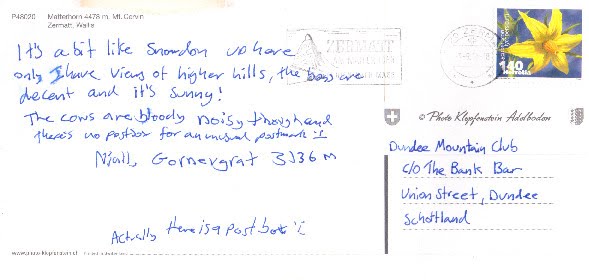 P48020 Matterhorn 4478 m, Mt. Cervin
Zermatt, Wallis
It's a bit like Snowdon up here
only I have views of higher hills, the bars are
decent and it's sunny!
The cows are bloody noisy though and
there's no postbox for an unusual postmark :(
Niall, Gornergrat 3136 m
Actually there is a post box :(
www.photo-klopfenstein.ch
ZERMATT
140
© Photo Klopfenstein Adelboden
Dundee Mountain Club
c/o The Bank Bar
Union Street, Dundee
Schottland